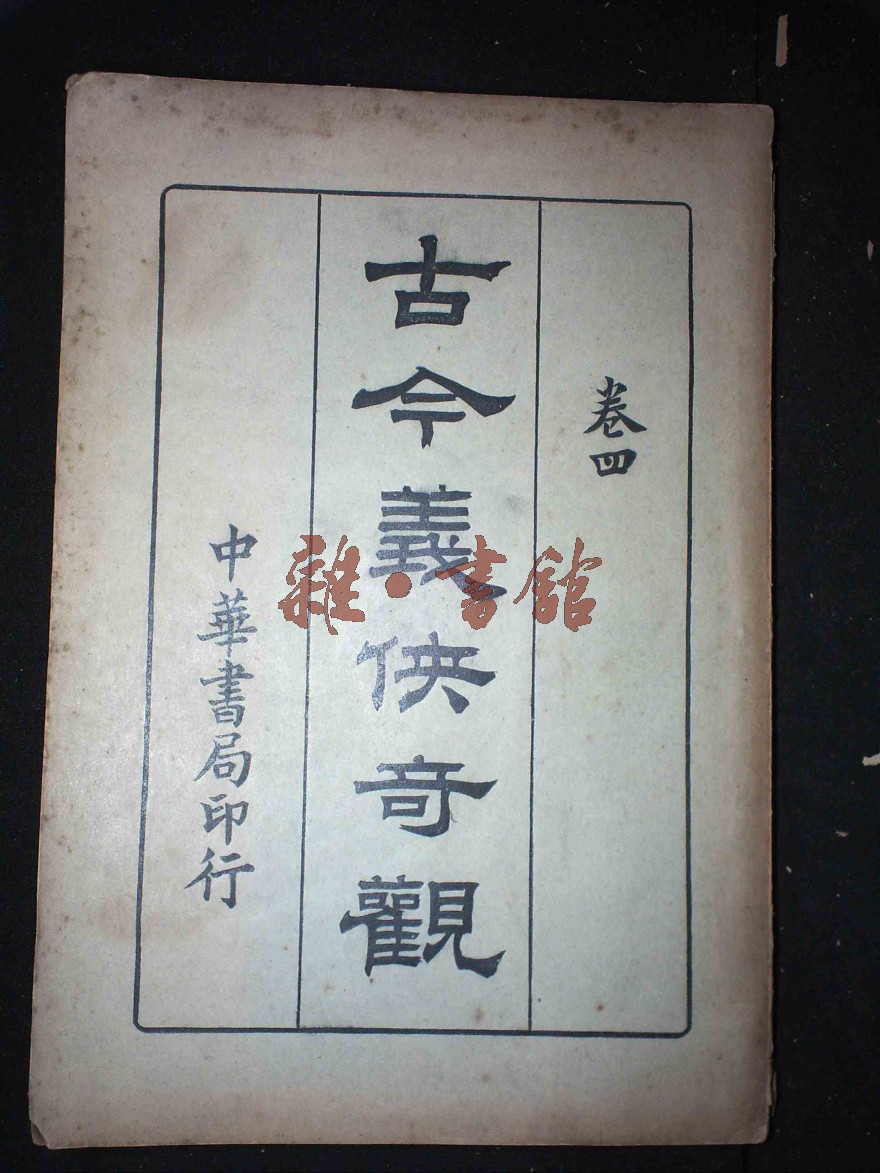 卷四
古今義俠奇觀
中華書局印行
雜·書館